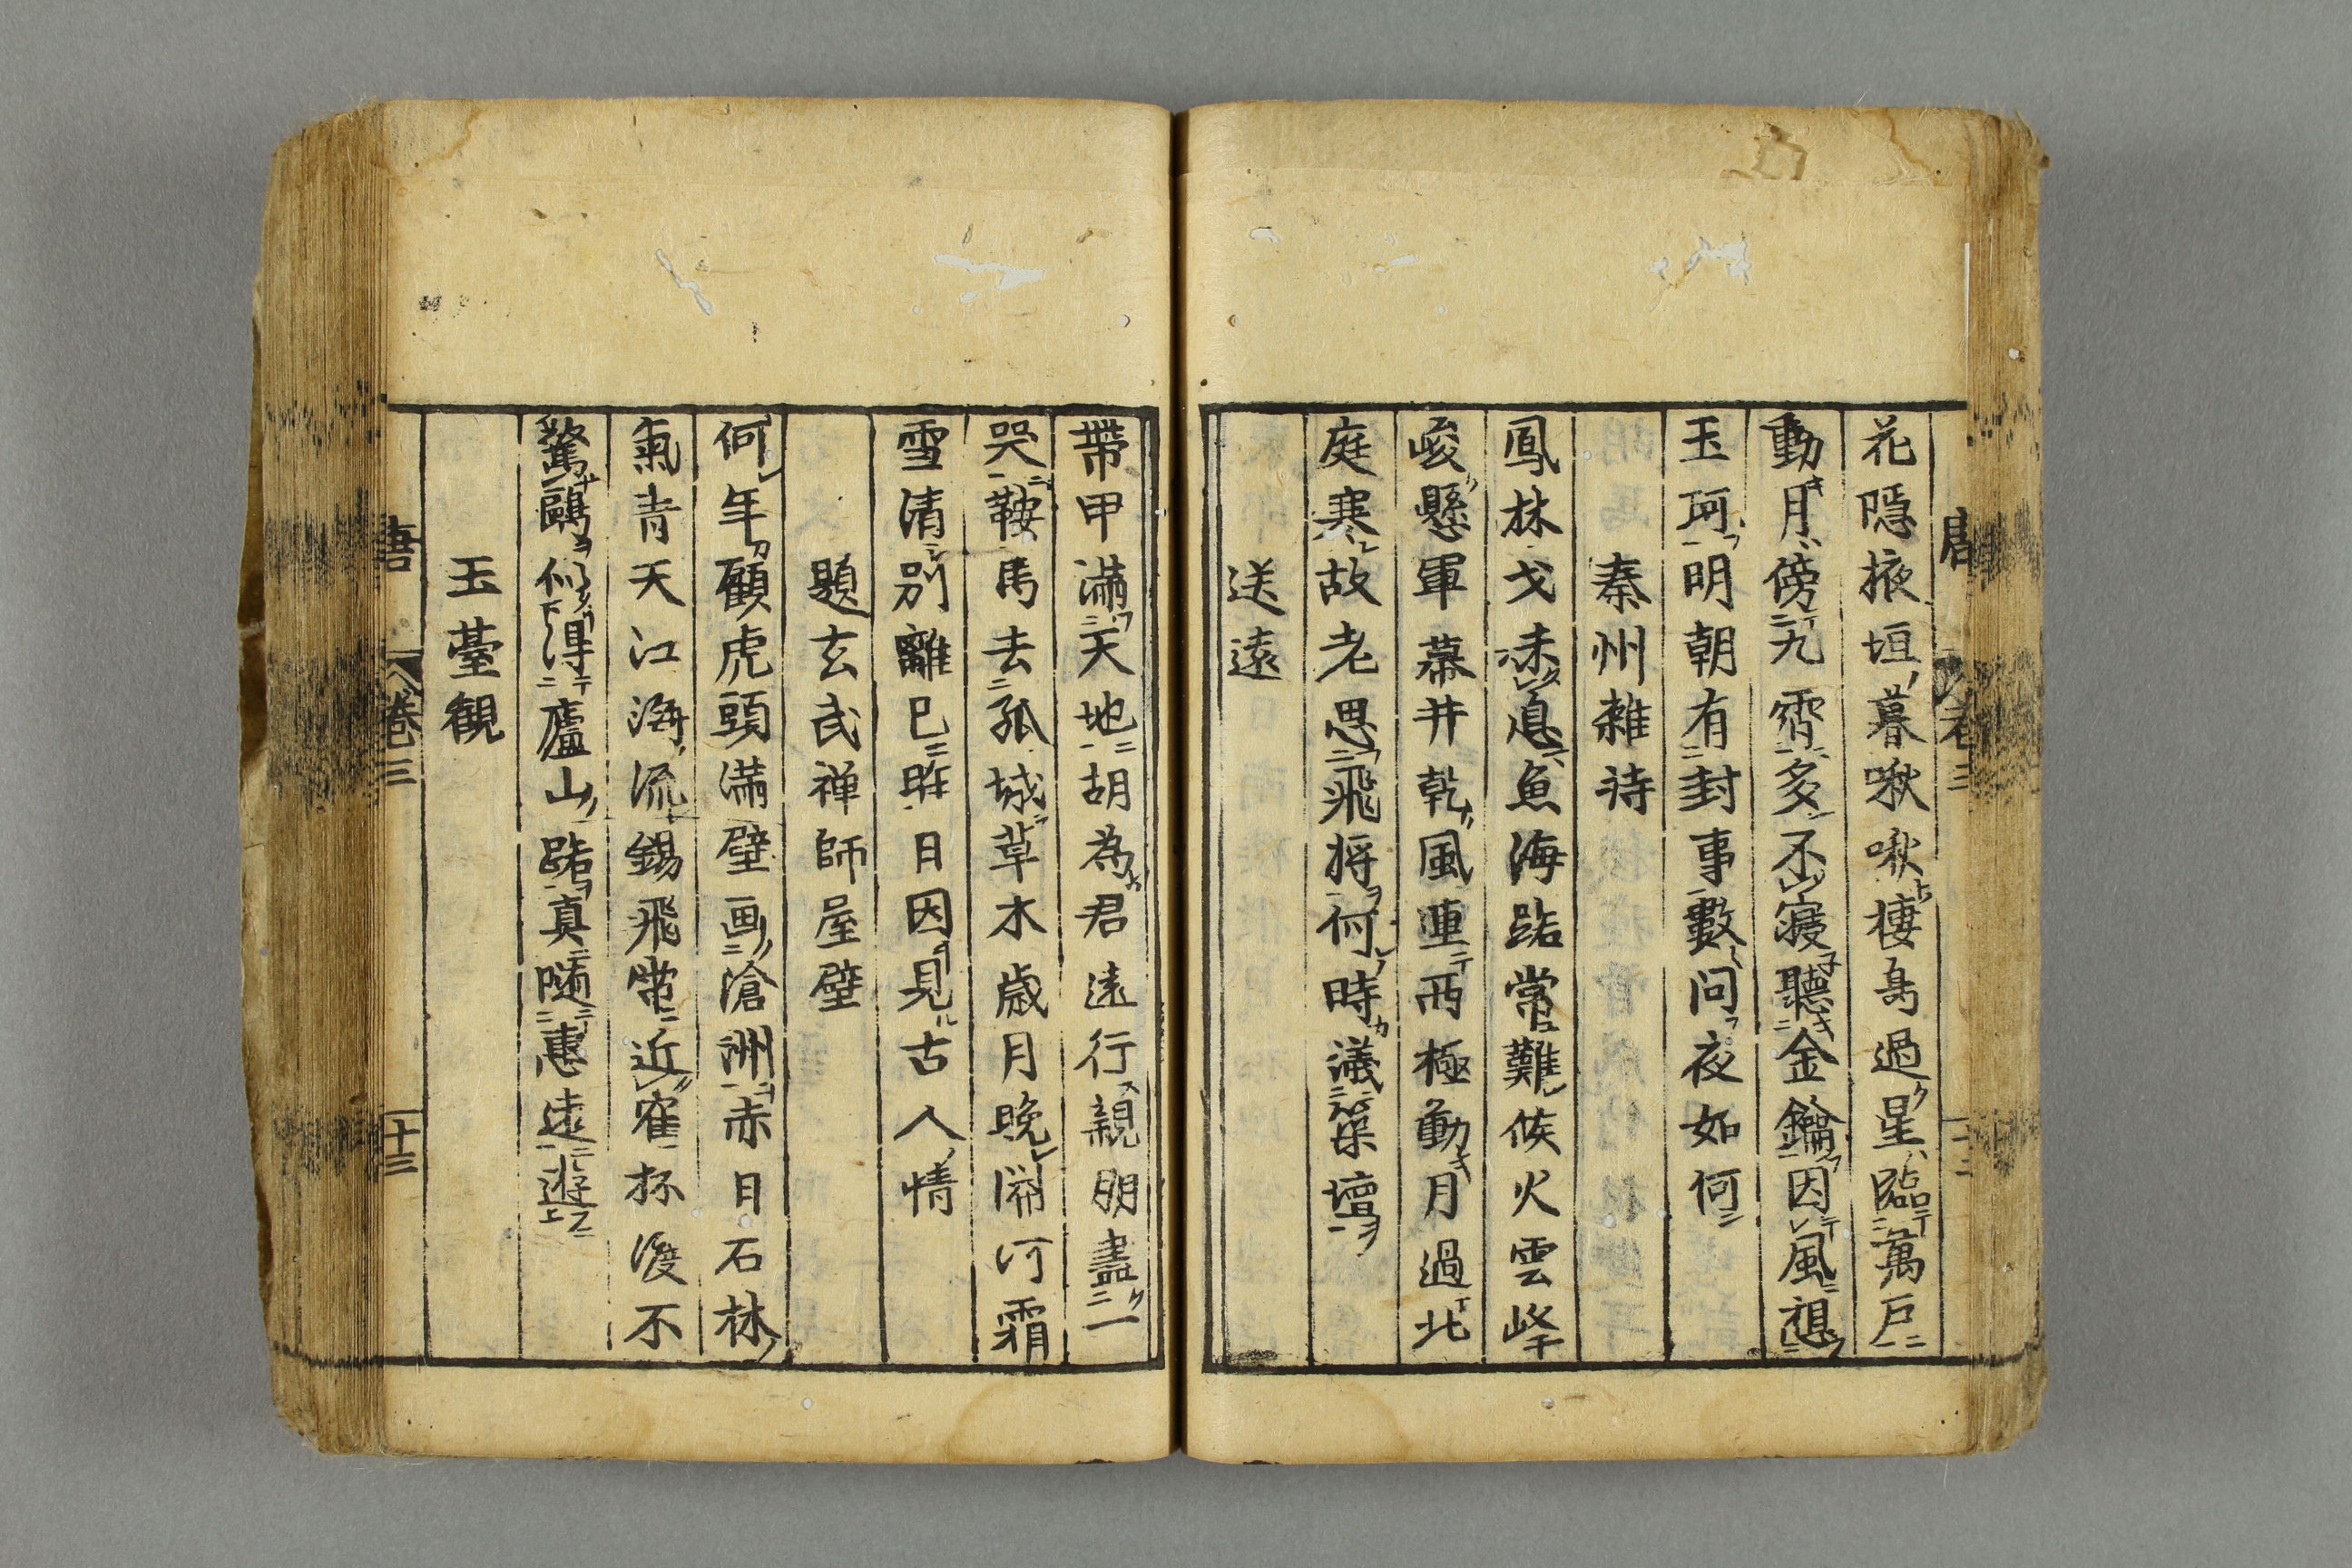 花隠掖垣暮啾啾棲鳥過星臨萬戸
動月傍九霄多不寢聽金鑰因風想
玉珂明朝有封事數问夜如何
秦州雜诗
鳳林戈未息魚海路常難候火雲峰
峻懸軍幕井乾風連西極動月過北
庭寒故老思飛将何時議築壇
送遠
帶甲满天地胡為君遠行親朋盡一
哭鞍馬去孤城草木歳月晚関河霜
雪清别離已昨日因見古人情
題玄武禅師屋壁
何年顧虎頭满壁画滄洲赤日石林
氣青天江海流錫飛常近寉杯渡不
驚鷗似得廬山路真随惠遠遊
玉臺観
唐
卷三
十三